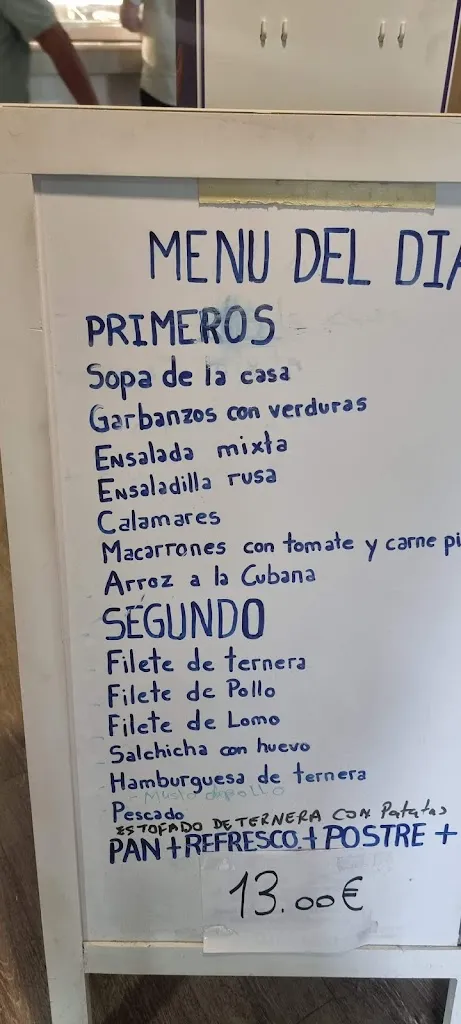 MENU DEL DIA
PRIMEROS
Sopa de la casa
Garbanzos con verduras
Ensalada mixta
Ensaladilla rusa
Calamares
Macarrones con tomate y carne pi
Arroz a la Cubana
SEGUNDO
Filete de ternera
Filete de Pollo
Filete de Lomo
Salchicha con huevo
Hamburguesa de ternera
Pescado
ESTOFADO DE TERNERA CON Patatas
PAN + REFRESCO + POSTRE +
13.00€